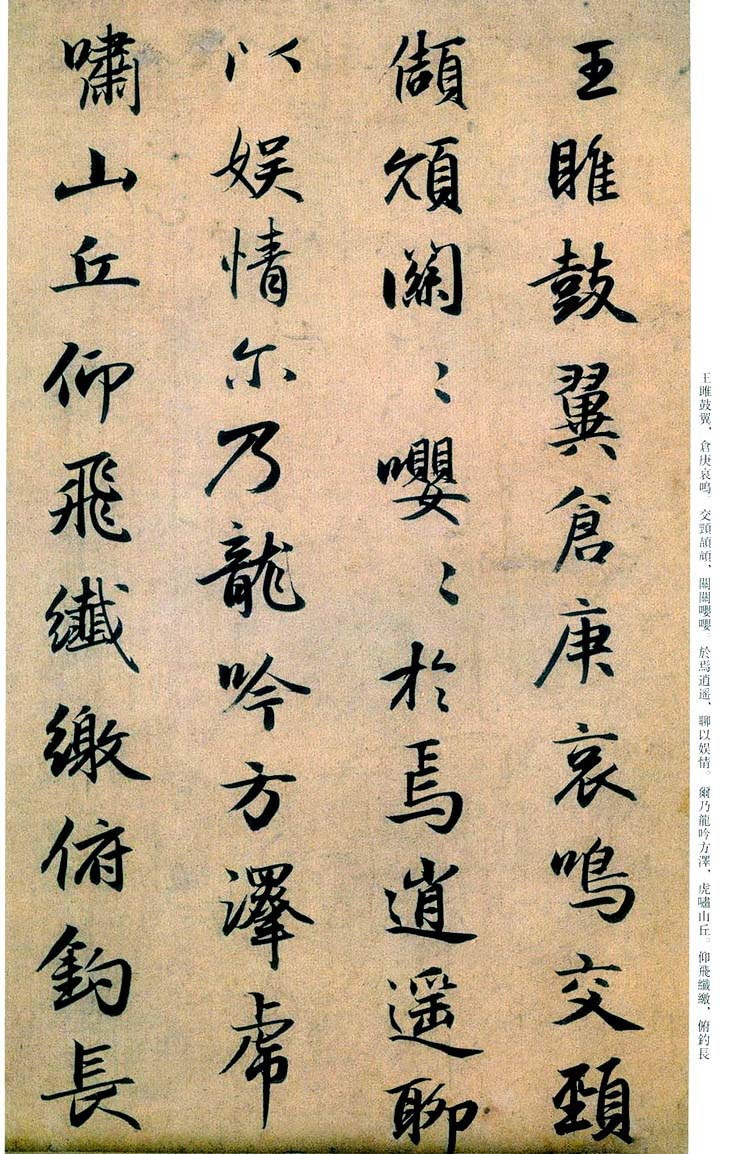 王雎鼓翼倉庚哀鳴交頸
頡頏關〻嚶〻於焉逍遥聊
以娱情尔乃龍吟方澤虎
嘯山丘仰飛纖繳俯釣長
王雎鼓翼、倉庚哀鳴。交頸頡頏、關關嚶嚶。於焉逍遥、聊以娱情。爾乃龍吟方澤、虎嘯山丘。仰飛纖繳、俯釣長